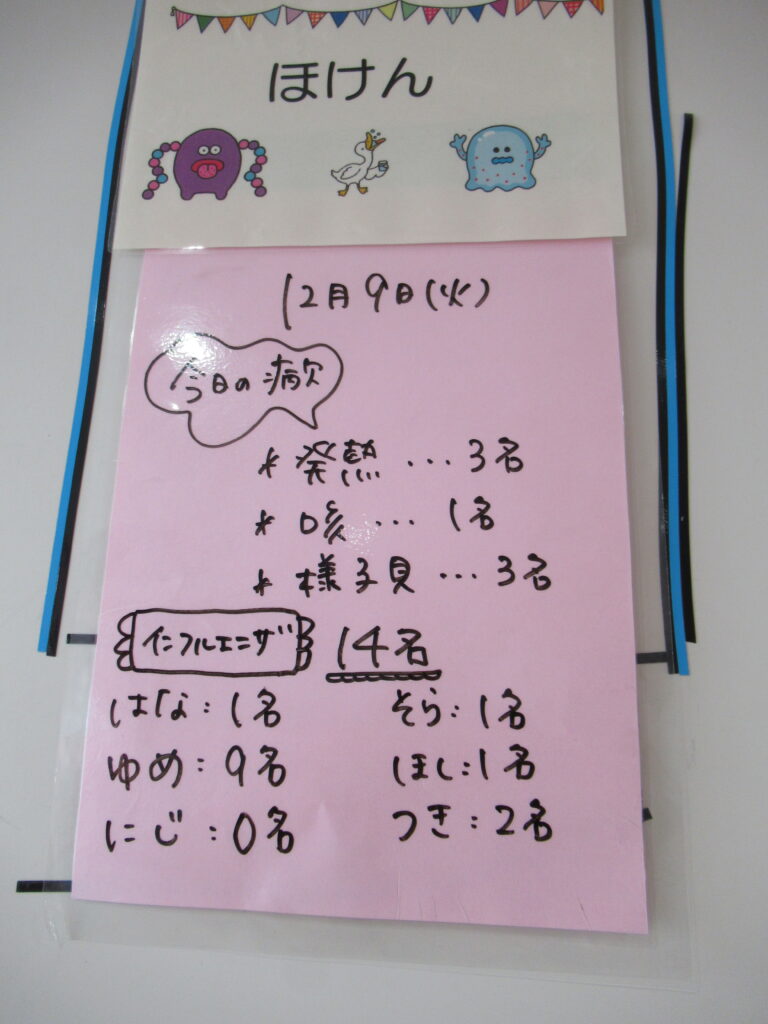 ほけん
12月9日(火)
今日の病欠
* 発熱 … 3名
* 咳 … 1名
* 様子見 … 3名
インフルエンザ 14名
はな:1名 そら:1名
ゆめ:9名 ほし:1名
にじ:0名 つき:2名